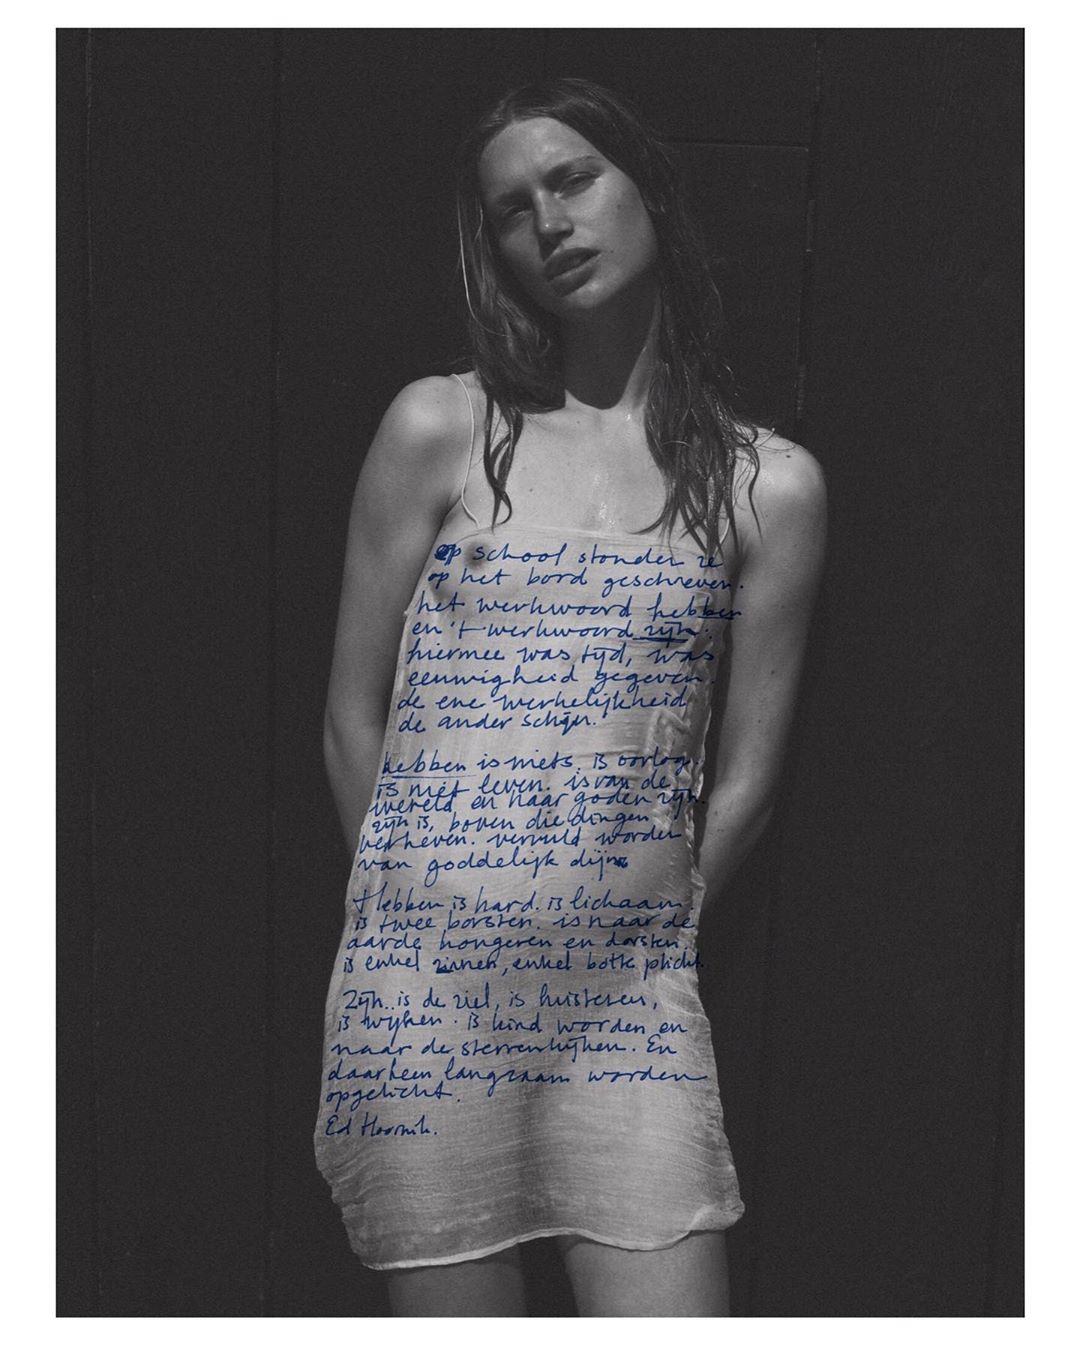 op school stonden ze
op het bord geschreven.
het werkwoord hebben
en 't werkwoord zijn.
hiermee was tijd, was
eeuwigheid gegeven.
de ene werkelijkheid
de ander schijn.
hebben is niets. is oorlog.
is niet leven. is van de
wereld en haar goden zijn.
zijn is, boven die dingen
verheven. vervuld worden
van goddelijk
Hebben is hard. is lichaam.
is twee borsten. is naar de
aarde hongeren en dorsten.
is enkel zinnen, enkel botte plicht.
Zijn is de ziel, is luisteren,
is wijken. is kind worden en
naar de sterren kijken. En
daarheen langzaam worden
opgelicht.
Ed Hoornik.